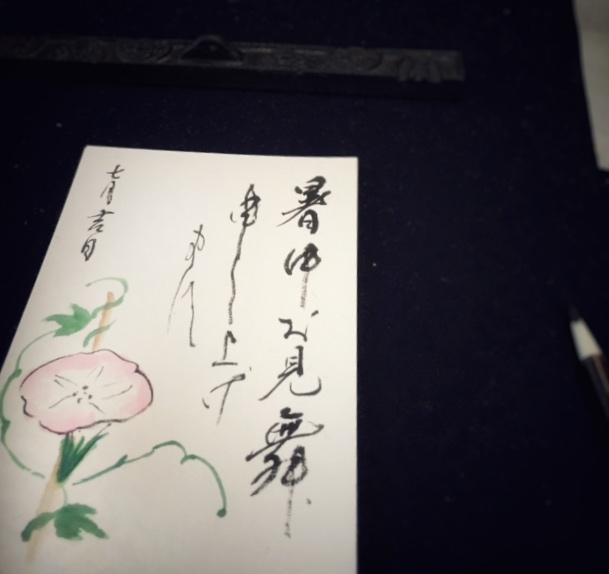 暑中お見舞
申し上げ
ます
七月吉日